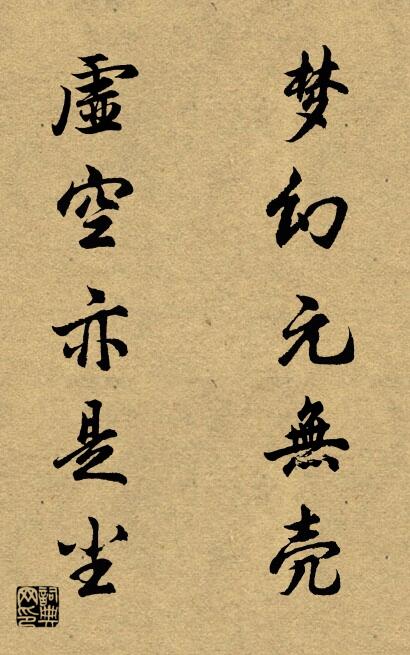 梦幻元無壳
虛空亦是尘
詞典
网印